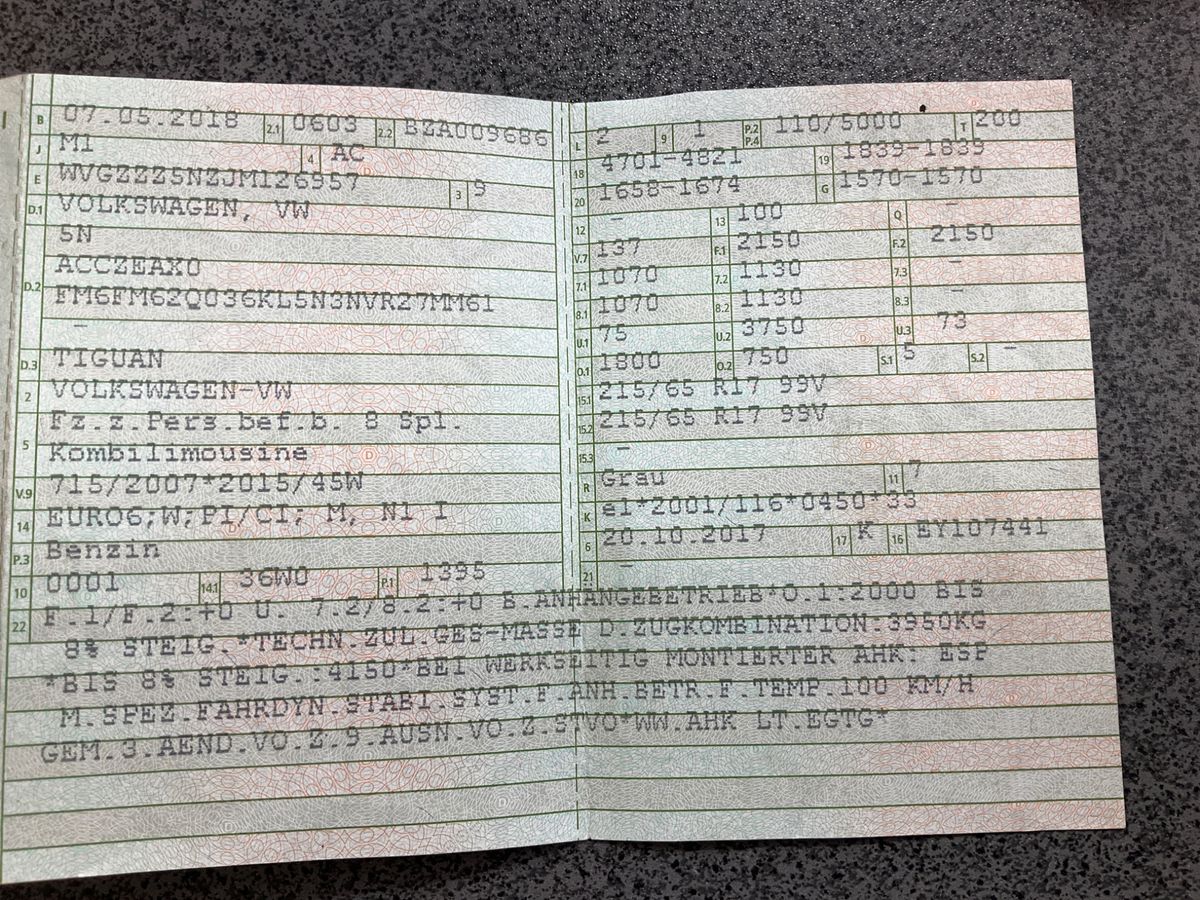 B 07.05.2018 2.1 0603 2.2 BZA009686
J M1 4 AC
E WVGZZZ5NZJM126957 3 9
D.1 VOLKSWAGEN, VW
5N
ACCZEAX0
D.2 FM6FM62Q036KL5N3NVR27MM61
–
D.3 TIGUAN
2 VOLKSWAGEN-VW
Fz.z.Pers.bef.b. 8 Spl.
5 Kombilimousine
V.9 715/2007*2015/45W
14 EURO6;W;PI/CI; M, N1 I
P.3 Benzin
10 0001 14.1 36W0 P.1 1395
L 2 9 1 P.2 P.4 110/5000 T 200
18 4701-4821 19 1839-1839
20 1658-1674 G 1570-1570
12 – 13 100 Q –
V.7 137 F.1 2150 F.2 2150
7.1 1070 7.2 1130 7.3 –
8.1 1070 8.2 1130 8.3 –
U.1 75 U.2 3750 U.3 73
O.1 1800 O.2 750 S.1 5 S.2 –
15.1 215/65 R17 99V
15.2 215/65 R17 99V
15.3 –
R Grau 11 7
K e1*2001/116*0450*33
6 20.10.2017 17 K 16 EY107441
21 –
22 F.1/F.2:+0 U. 7.2/8.2:+0 B.ANHÄNGEBETRIEB*O.1:2000 BIS
8% STEIG.*TECHN.ZUL.GES-MASSE D.ZUGKOMBINATION:3950KG
*BIS 8% STEIG.:4150*BEI WERKSEITIG MONTIERTER AHK: ESP
M.SPEZ.FAHRDYN.STABI.SYST.F.ANH.BETR.F.TEMP.100 KM/H
GEM.3.AEND.VO.Z.9.AUSN.VO.Z.STVO*WW.AHK LT.EGTG*